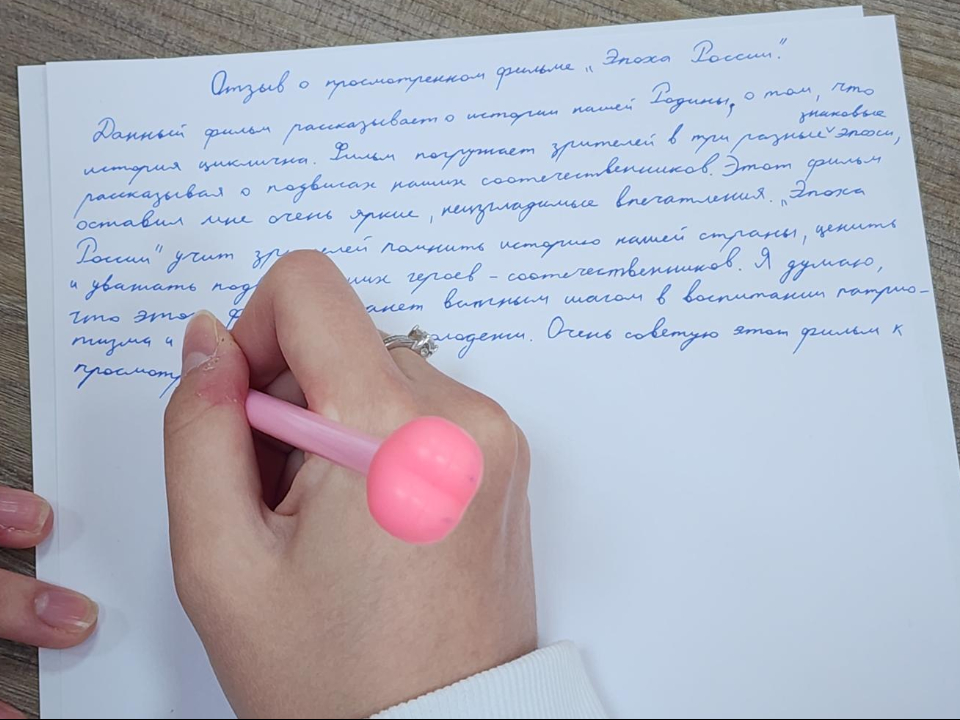 Отзыв о просмотренном фильме „Эпоха России".
Данный фильм рассказывает о истории нашей Родины, о том, что
история циклична. Фильм погружает зрителей в три разные знаковые эпохи,
рассказывая о подвигах наших соотечественников. Этот фильм
оставил мне очень яркие, неизгладимые впечатления. „Эпоха
России" учит зрителей помнить историю нашей страны, ценить
и уважать героев - соотечественников. Я думаю,
что этот важным шагом в воспитании патрио-
тизма и Очень советую этот фильм к